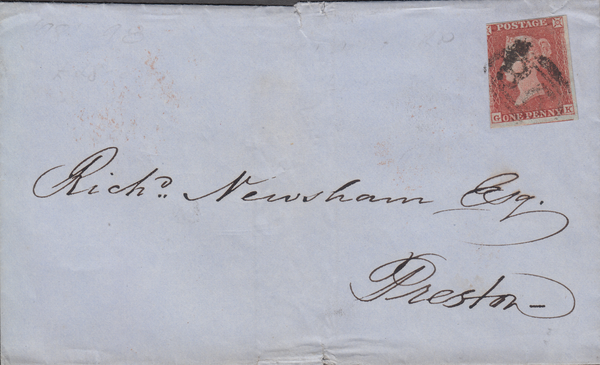 POSTAGE
G ONE PENNY K
Richd. Newsham Esq.
Preston